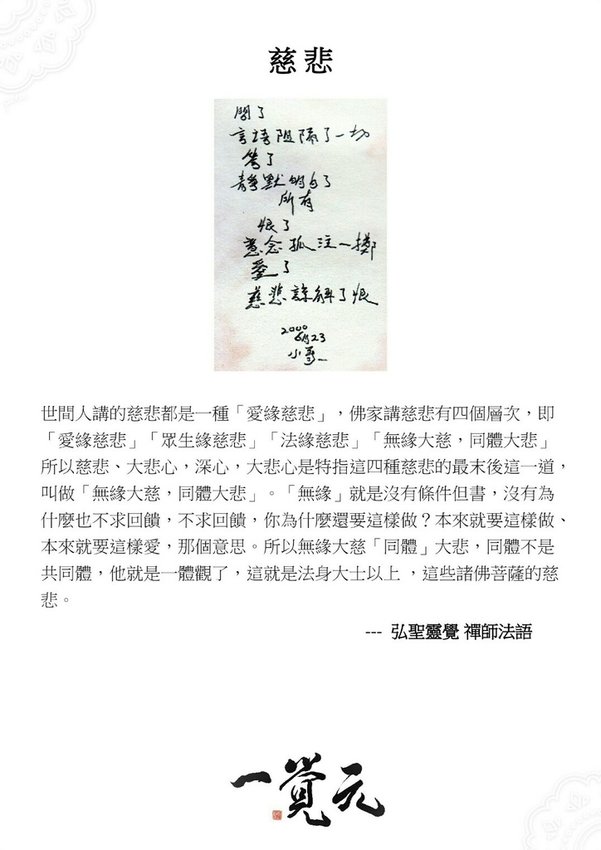 慈悲
問了
言語阻隔了一切
答了
靜默明白了
所有
恨了
意念孤注一擲
愛了
慈悲諒解了恨
2000
6月23
世間人講的慈悲都是一種「愛緣慈悲」，佛家講慈悲有四個層次，即
「愛緣慈悲」「眾生緣慈悲」「法緣慈悲」「無緣大慈，同體大悲」
所以慈悲、大悲心，深心，大悲心是特指這四種慈悲的最末後這一道，
叫做「無緣大慈，同體大悲」。「無緣」就是沒有條件但書，沒有為
什麼也不求回饋，不求回饋，你為什麼還要這樣做？本來就要這樣做、
本來就要這樣愛，那個意思。所以無緣大慈「同體」大悲，同體不是
共同體，他就是一體觀了，這就是法身大士以上 ，這些諸佛菩薩的慈
悲。
--- 弘聖靈覺 禪師法語
一覺元